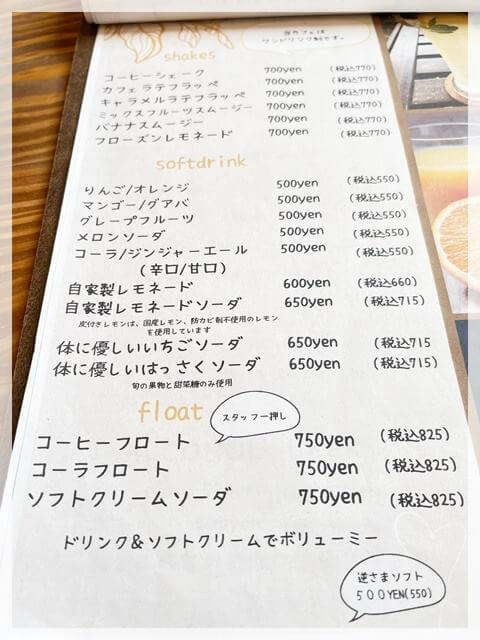 当カフェは
ワンドリンク制です。
shakes
コーヒーシェーク 700yen (税込770)
カフェラテフラッペ 700yen (税込770)
キャラメルラテフラッペ 700yen (税込770)
ミックスフルーツスムージー 700yen (税込770)
バナナスムージー 700yen (税込770)
フローズンレモネード 700yen (税込770)
softdrink
りんご/オレンジ 500yen (税込550)
マンゴー/グアバ 500yen (税込550)
グレープフルーツ 500yen (税込550)
メロンソーダ 500yen (税込550)
コーラ/ジンジャーエール 500yen (税込550)
(辛口/甘口)
自家製レモネード 600yen (税込660)
自家製レモネードソーダ 650yen (税込715)
皮付きレモンは、国産レモン、防カビ剤不使用のレモン
を使用しています
体に優しいいちごソーダ 650yen (税込715
体に優しいはっさくソーダ 650yen (税込715)
旬の果物と甜菜糖のみ使用
float
スタッフ一押し
コーヒーフロート 750yen (税込825)
コーラフロート 750yen (税込825)
ソフトクリームソーダ 750yen (税込825)
ドリンク&ソフトクリームでボリューミー
逆さまソフト
500YEN(550)